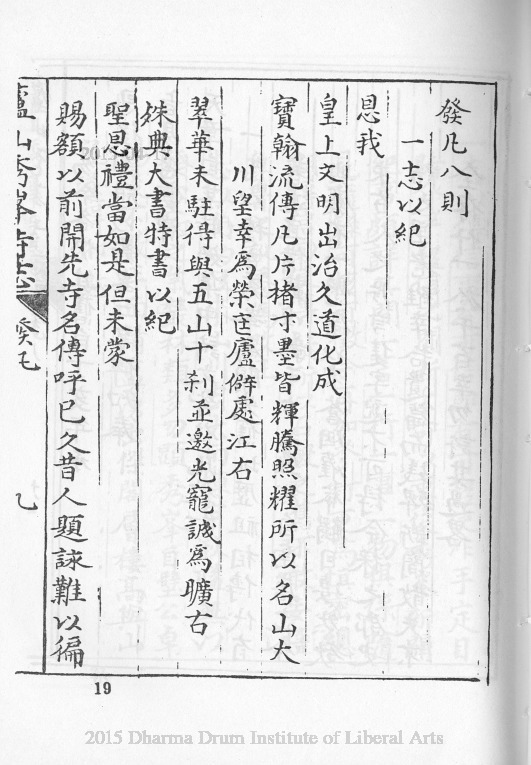 發凡八則
一志以紀
恩我
皇上文明出治久道化成
寶翰流傳凡片楮寸墨皆輝騰照耀所以名山大
川望幸爲榮匡廬僻處江右
翠華未駐得與五山十刹並邀光寵誠爲曠古
殊典大書特書以紀
聖恩禮當如是但未蒙
賜額以前開先寺名傳呼已久昔人題詠難以徧
廬山秀峯寺志 發凡 乙
19
2015 Dharma Drum Institute of Liberal Arts